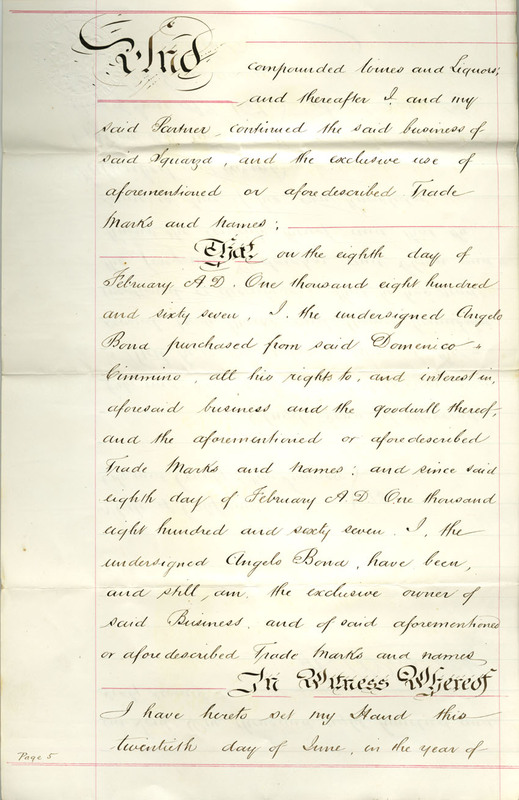 And compounded Wines and Liquors;
and thereafter I. and my
said Partner, continued the said business of
said Squarza, and the exclusive use of
aforementioned or aforedescribed Trade
Marks and Names;
That on the eighth day of
February A.D. One thousand eight hundred
and sixty seven, I. the undersigned Angelo
Bond purchased from said Domenico
Cimmino, all his rights to, and interest in,
aforesaid business and the goodwill thereof,
and the aforementioned or aforedescribed
Trade Marks and Names; and since said
eighth day of February A.D. One thousand
eight hundred and sixty seven. I, the
undersigned Angelo Bond, have been,
and still, am, the exclusive owner of
said Business, and of said aforementioned
or aforedescribed Trade Marks and names
In Witness Whereof
I have hereto set my Hand this
twentieth day of June, in the year of
Page 5